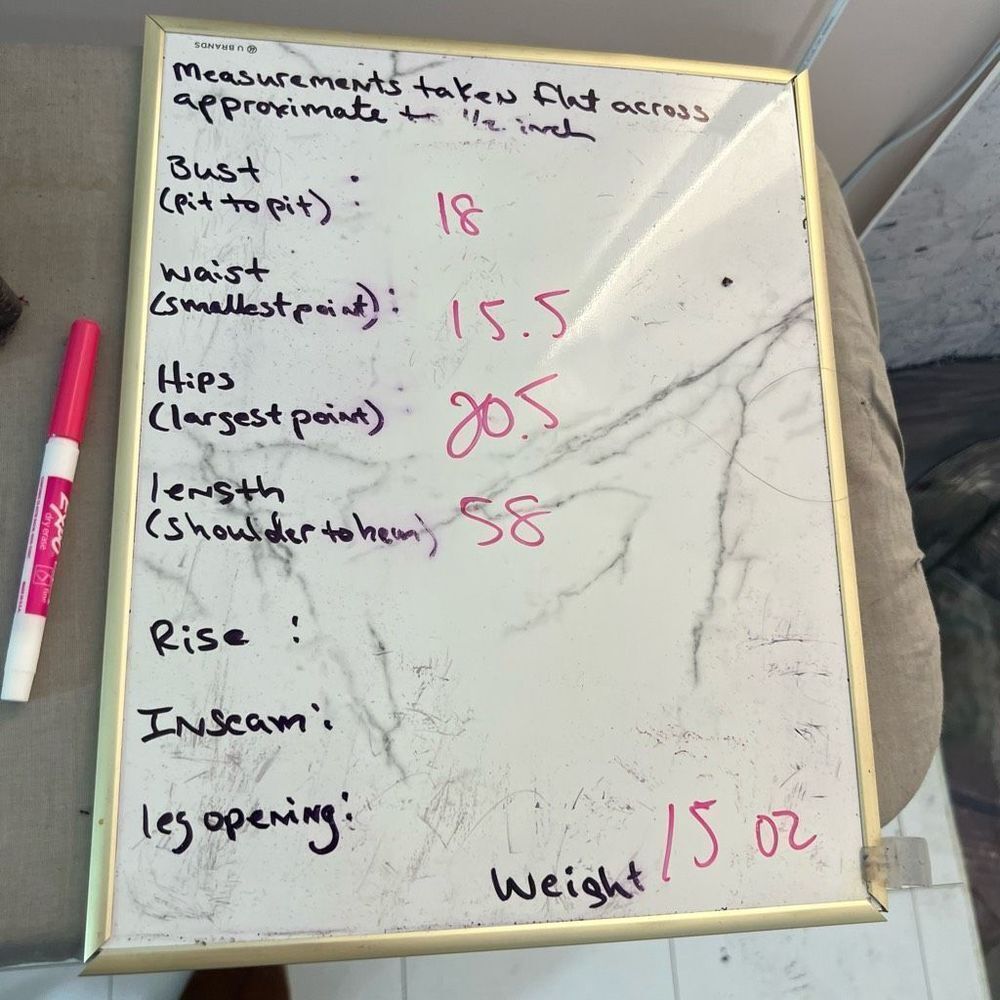 U BRANDS
Measurements taken flat across
approximate to 1/2 inch
Bust
(pit to pit) : 18
waist
(smallest point) : 15.5
Hips
(largest point) 20.5
length
(shoulder to hem) 58
Rise :
Inseam :
leg opening :
Weight 15 oz
EXPO
dry erase
fine